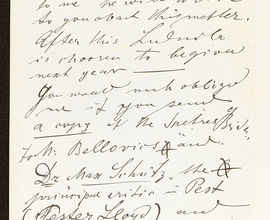 to me he will
to you about this matter.
After this Ludwig
is chosen to begin
next year —
You would much oblige
me if you send
a copy of the Spectre's Bride
to Mr Bellovics and
Dr Max Schütz, the
principal critic in Pest
(Pester Lloyd) and